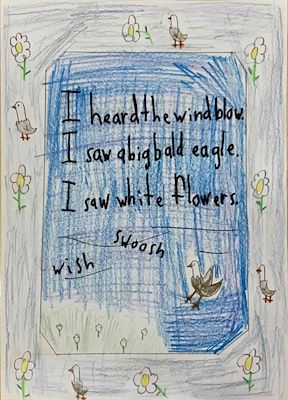 I heard the wind blow.
I saw a big bald eagle.
I saw white flowers.
swoosh
wish